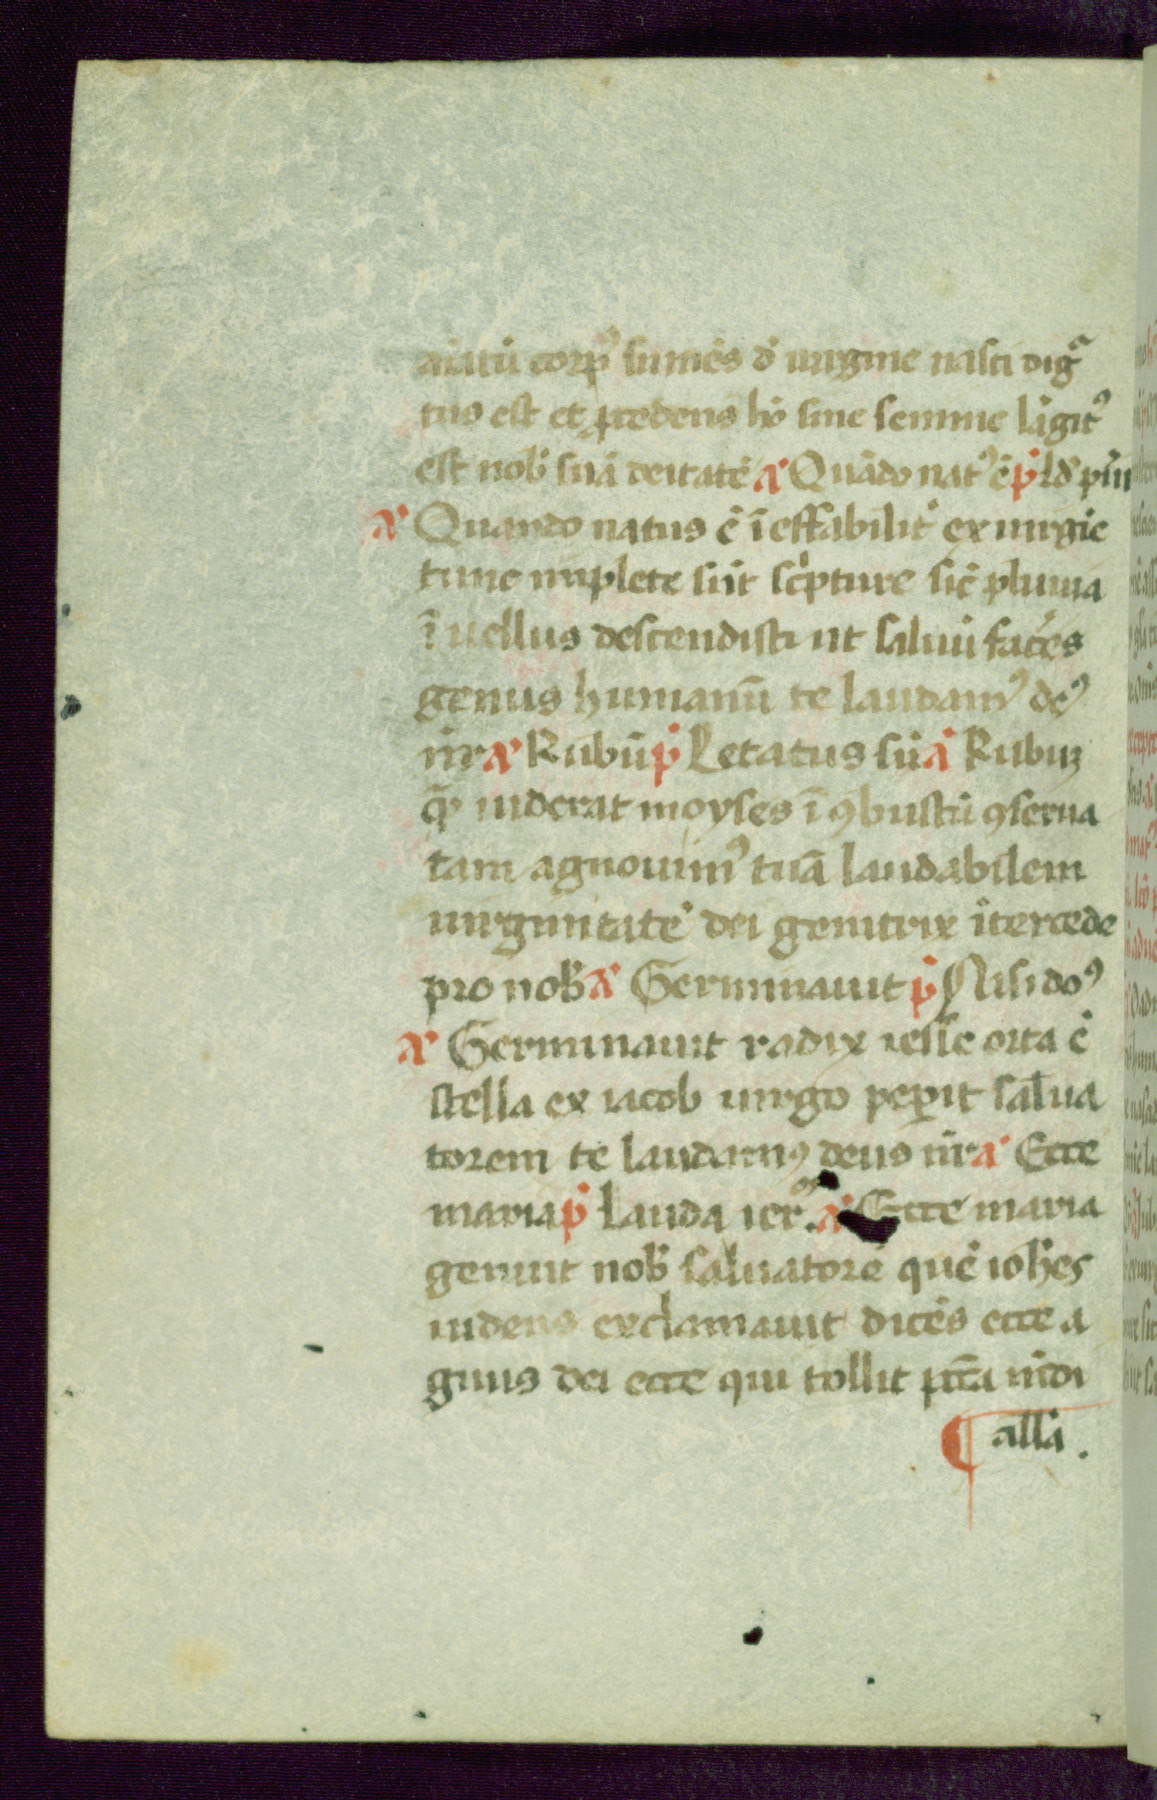 aīatū corpꝰ sumēs d̄ uirgine nasci digᷓ
tus est et ꝓcedens hō sine semine lāgitꝰ
est nob̄ suā deitatē a͛ Quādo natꝰ ē p̄ s ld̄ p̄m
a͛ Quando natus ē īeffabilit᷑ ex uirgīe
tunc implete sūt sc̄pture sic̄ pluuia
ī uellus descendisti ut saluū facēs
genus humanū te laudamꝰ deꝰ
nr̄ a͛ Rubū p̄ s Letatus sū a͛ Rubuꝫ
q̄ uiderat moyses īꝯbustū ꝯserua
tam agnouimꝰ tuā laudabilem
uirginitatē dei genitrix ītercede
pro nob̄ a͛ Germinauit p̄ s Nisi doꝰ
a͛ Germinauit radix iesse orta ē
stella ex iacob uirgo peꝑit salua
torem te laudamꝰ deus nr̄ a͛ Ecce
maria p̄ s Lauda ier̄ a͛ Ecce maria
genuit nob̄ saluatorē quē ioh̄es
uidens exclamauit dicēs ecce a
gnus dei ecce qui tollit pccā mūdi
¶ all̄a .